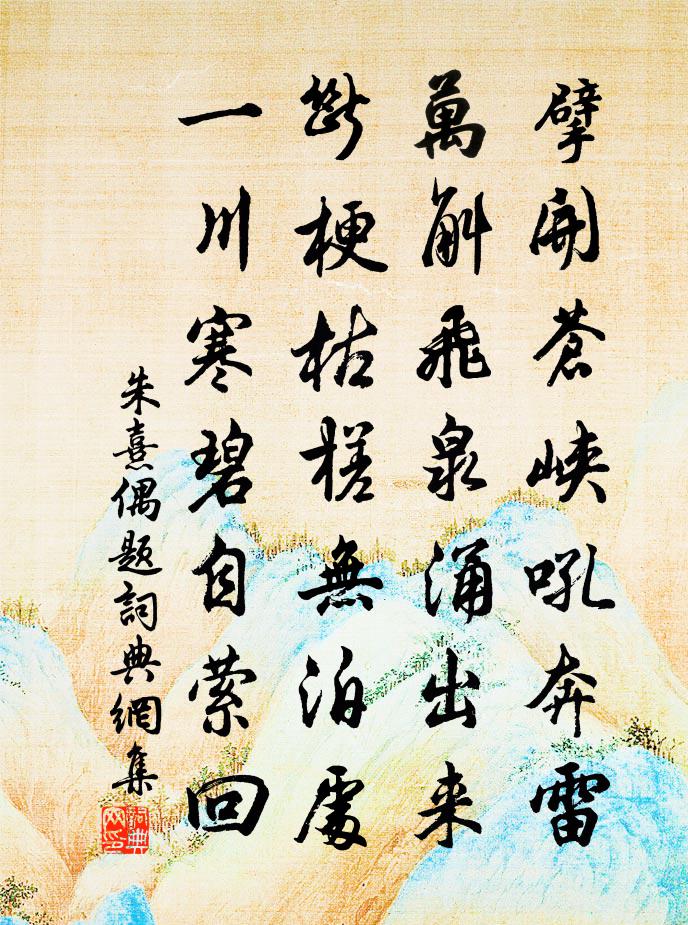 擘開蒼峽吼奔雷
萬斛飛泉涌出来
斷梗枯槎無泊處
一川寒碧自縈回
朱熹偶題詞典網集
詞典
网印